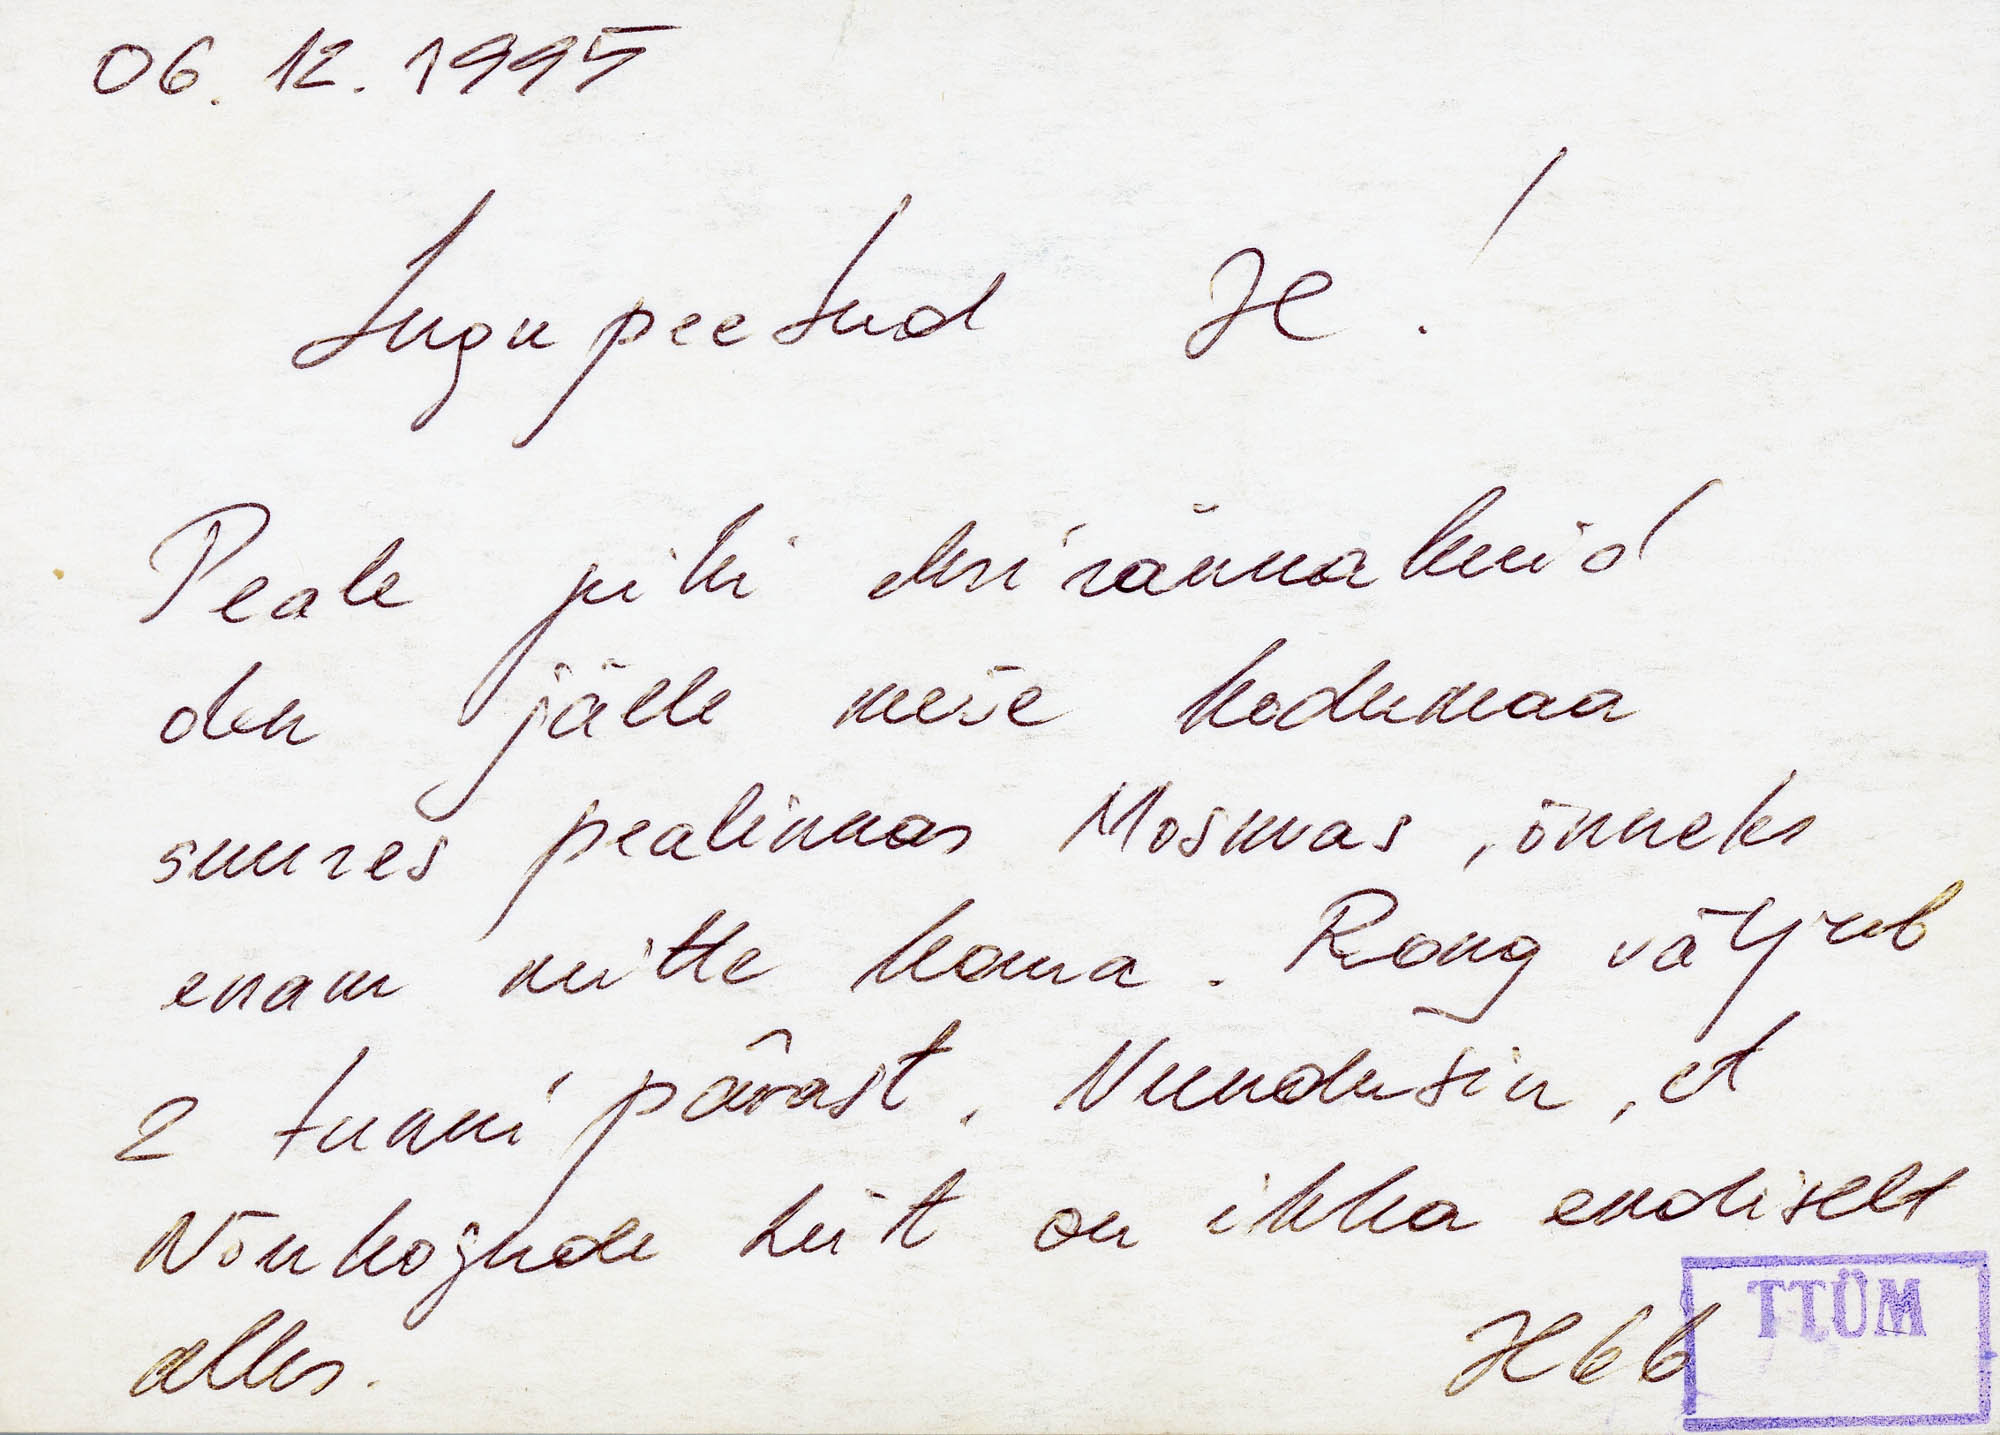 06.12.1995
Lugupeetud H!
Peale pikki eksirännakuid
olen jälle meie kodumaa
suures pealinnas Moskvas, õnneks
enam mitte kaua. Rong väljub
2 tunni pärast. Nuudusin, et
Nõukogude Liit on ikka endiselt
alles.
H66
TTÜM